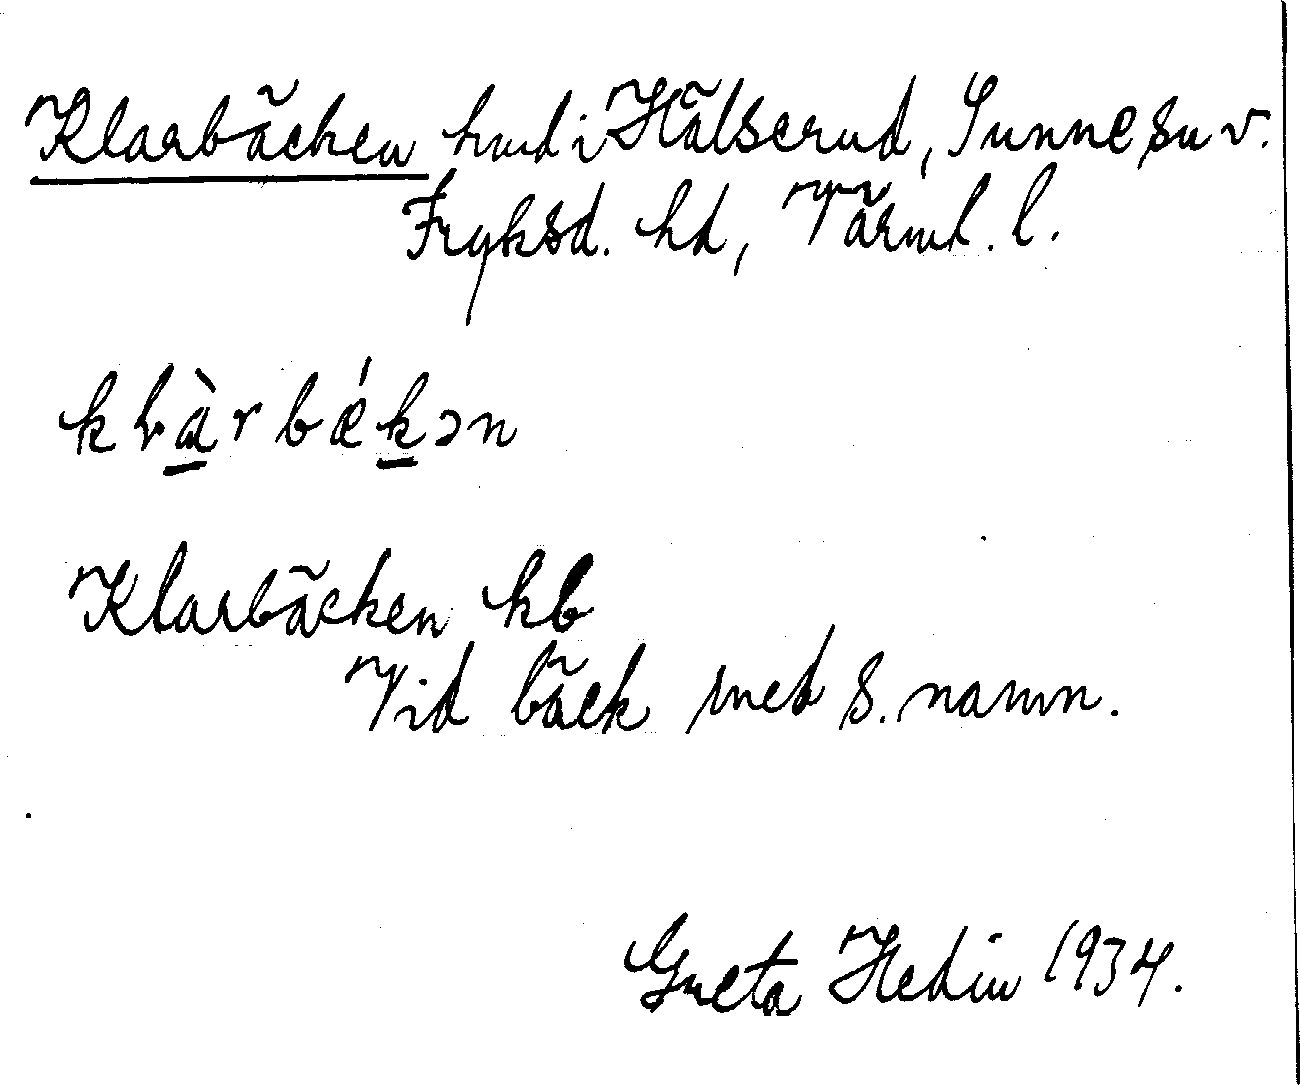 Klarbäcken hmd i Hälserud, Sunne sn v.
Fryksd. hd, Värml. l.
kḷàrbǽkən
Klarbäcken hb
Vid bäck med s. namn.
Greta Hedin 1934.